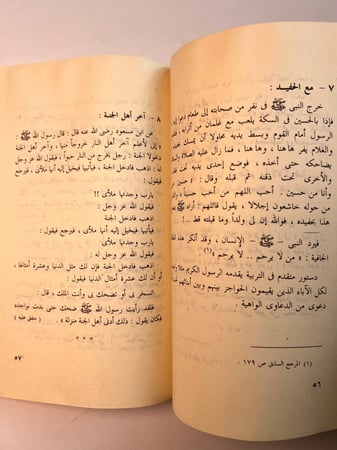 ٧ – مع الحفيد :
خرج النبى ﷺ فى نفر من صحابته إلى طعام دعوا
فإذا بالحسين فى السكة يلعب مع غلمان من أترابه
الرسول أمام القوم وبسط يديه محاولا أن
والغلام يفر هاهنا ، وهاهنا ، فما زال عليه الصلاة
يضاحكه حتى أخذه ، فوضع إحدى يديه تحت
الأخرى تحت ذقنه ثم قبله . وقال :
وأنا من حسين . أحب اللهم من أحب حسينا
من حوله خاشعون إجلالا ، يقول قائلهم : أراه
هذا بحفيده ، فوالله إن لى ولدا وما قبلته قط
فيرد النبى ﷺ – الإنسان ، وقد أنكر هذه
الجافية : « من لا يرحم .. لا يرحم » (١)
دستور متقدم فى التربية يقدمه الرسول الكريم
لكل الآباء الذين يقيمون الحواجز بينهم وبين أبنائهم
دعوى من الدعاوى الواهية
(١) المرجع السابق ص ١٧٩
٥٦
٨ – آخر أهل الجنة :
عن ابن مسعود رضى الله عنه قال : قال رسول الله ﷺ
إنى لأعلم آخر أهل النار خروجاً منها ، وآخر أهل الجنة
دخولا الجنة : رجل يخرج من النار حبواً ، فيقول الله عز وجل له
اذهب فادخل الجنة ، فيأتيها فيخيل إليه أنها ملأى ، فيرجع
فيقول :
يارب وجدتها ملأى !
فيقول الله عز وجل له :
اذهب فادخل الجنة ، فيأتيها فيخيل إليه أنها ملأى ، فيرجع
فيقول :
يارب وجدتها ملأى !
فيقول الله عز وجل له
اذهب فادخل الجنة فإن لك مثل الدنيا وعشرة أمثالها ،
أو أن لك عشرة أمثال الدنيا فيقول :
أتسخر بى أو تضحك بى وأنت الملك ، قال :
فلقد رأيت رسول الله ﷺ ضحك حتى بدت نواجذه
فكان يقول : ذلك أدنى أهل الجنة منزلة » . ( متفق عليه )
* * *
٥٧